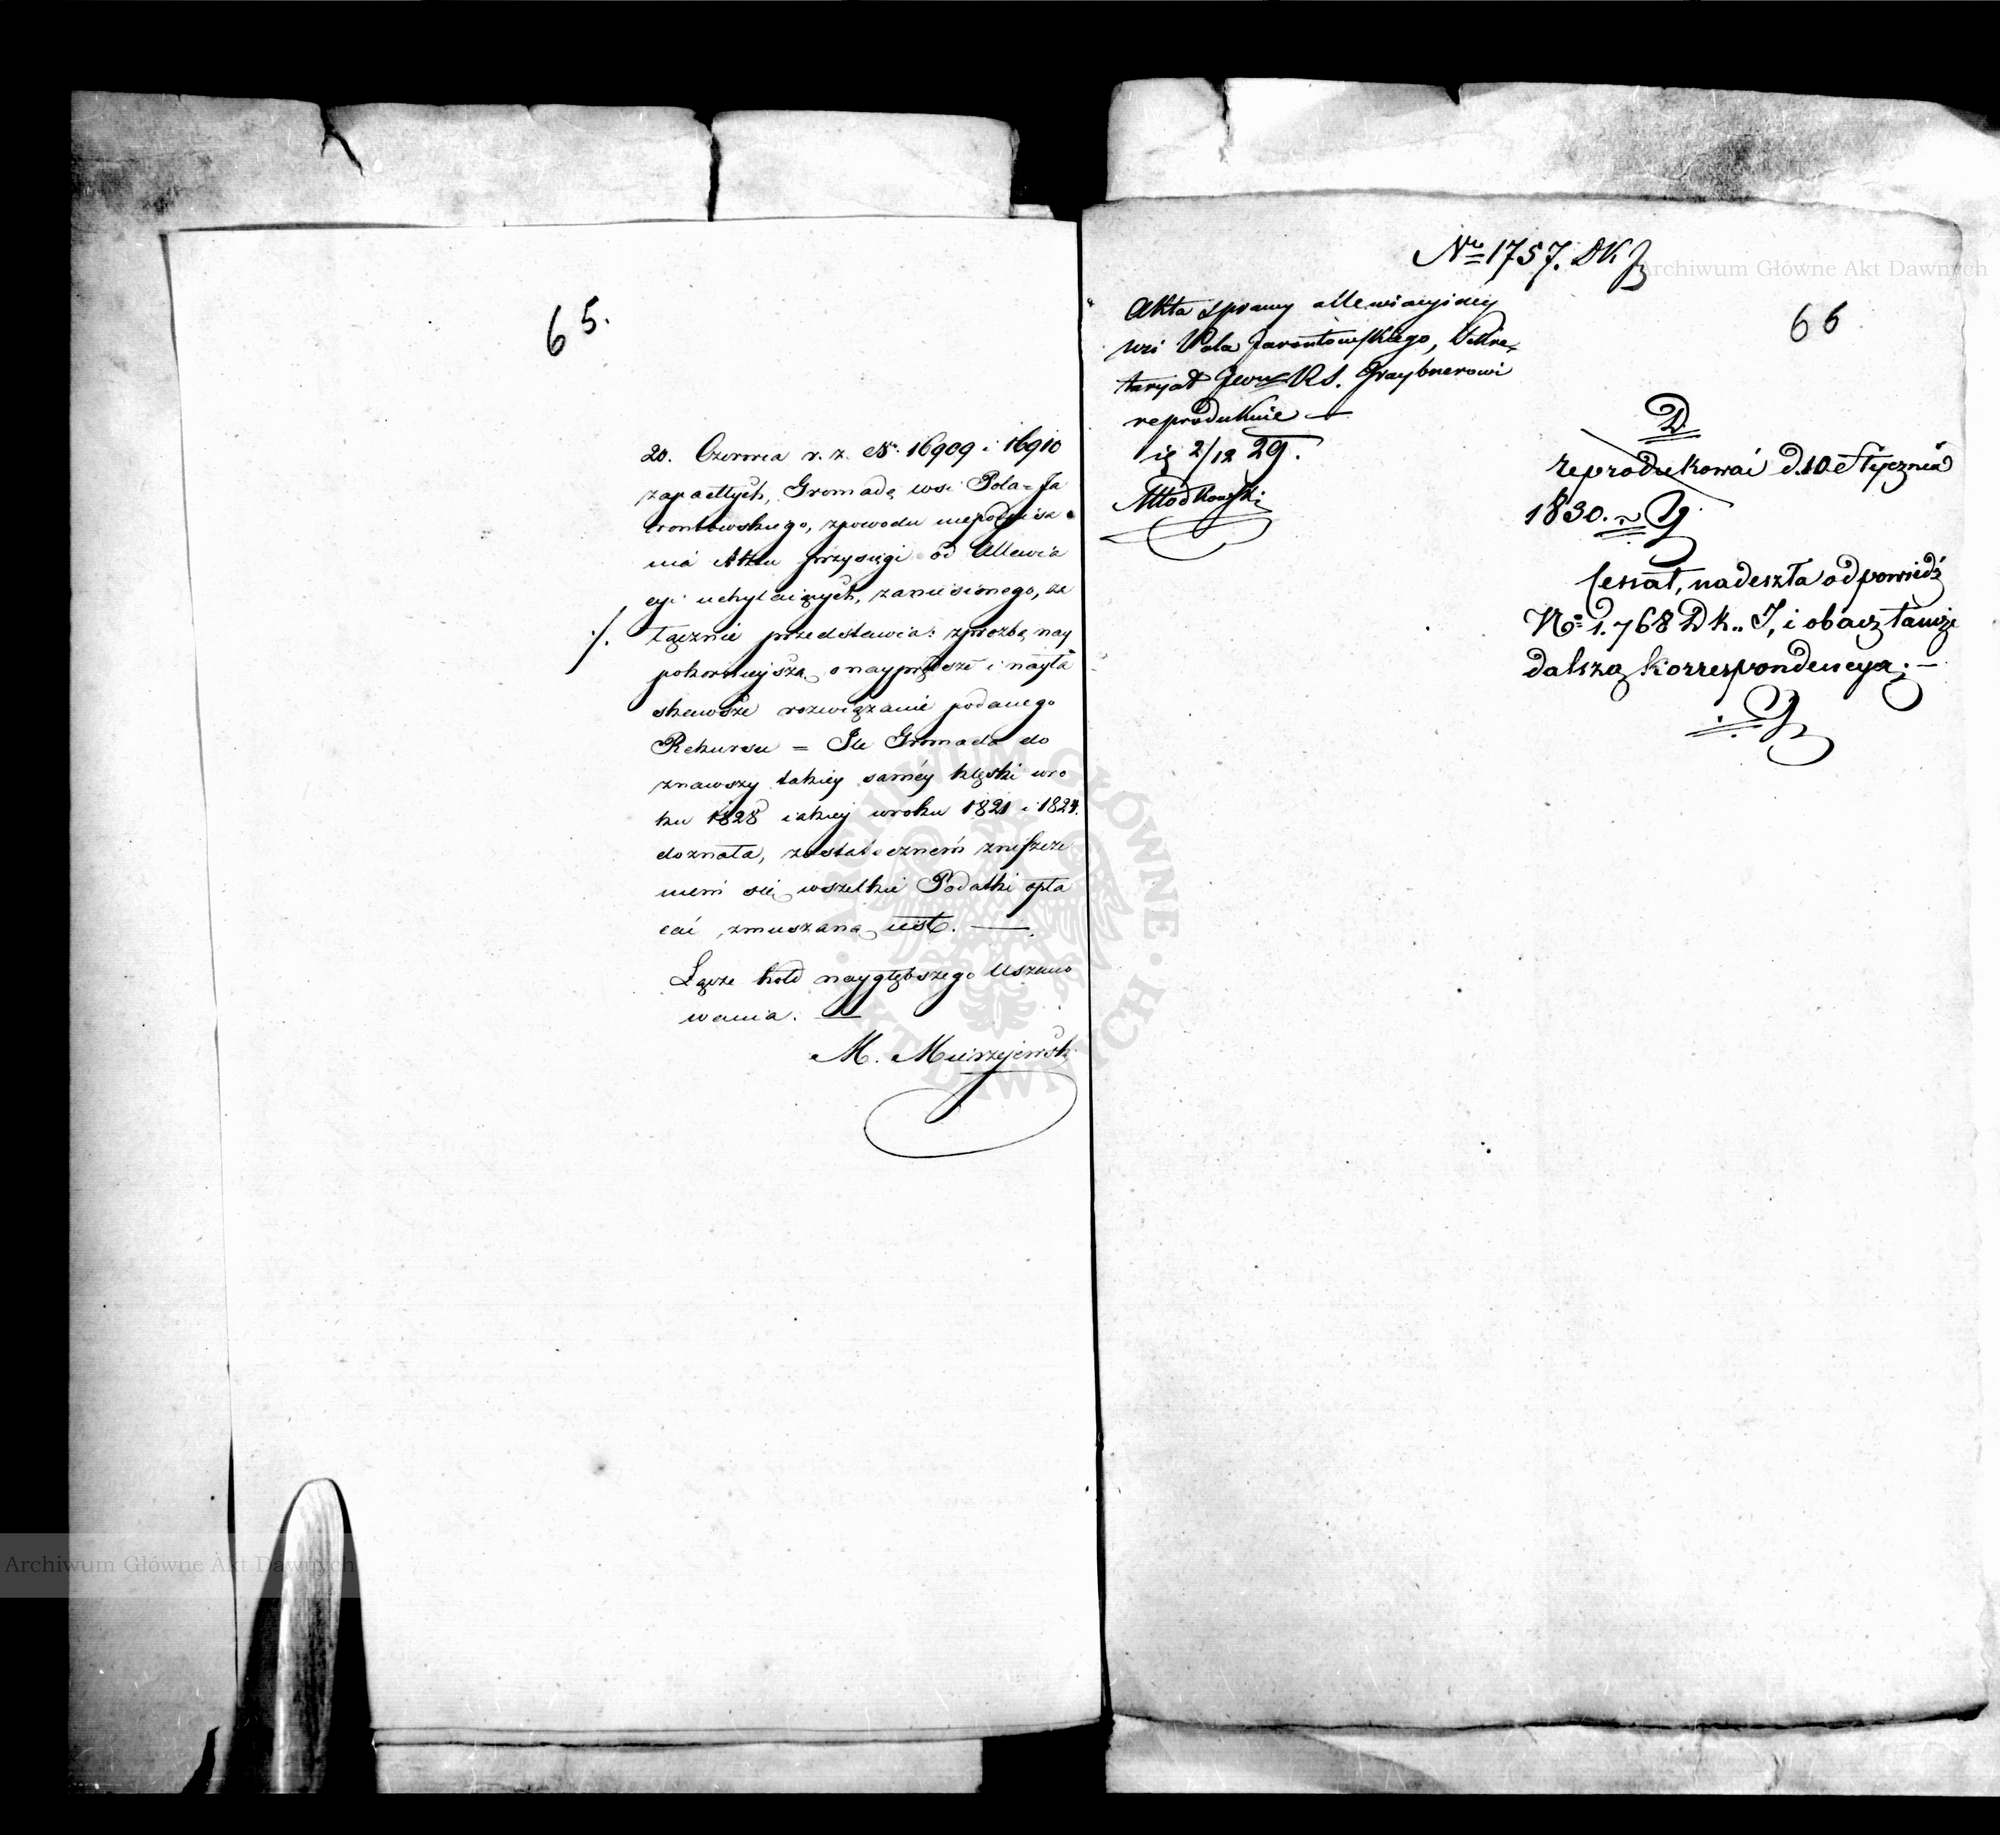 65.
20. Czerwca r. z. Nr. 16909 i 16910
zapadłych, Gromadę wsi Pola=Ja
rontowskiego, zpowodu niepodpisa
nia Aktu przysięgi od Allewia
cyi uchylaiących, zaniesionego, za
./. łącznie przedstawia: zprozbą nay
pokornieyszą o nayprętsze i nayła
skawsze rozwiązanie podanego
Rekursu = Ile Gromada do
znawszy takiey saméy klęski wro
ku 1828 iakiey wroku 1821 i 1824.
doznała, zostatecznem znisżcze
niem się wszelkie Podatki opła
cać zmuszaną iest. —
Łączę hołd naygłębszego Uszano
wania. —
M. Mierzejewski
Nro 1757. DKJ
66
Akta sprawy allewiacyiney
wsi Pola Jarontowskiego, Sekre-
taryat Jen RS. Graybnerowi
reprodukuie —
2/12 29.
Młodkowski
D
reprodukować d. 10. Stycznia
1830.
Cessat, nadeszła odpowiedź
No 1.768 Dk.. J, i obacz tamże
dalszą korrespondencyą. —
Archiwum Główne Akt Dawnych
Archiwum Główne Akt Dawnych
ARCHIWUM GŁÓWNE AKT DAWNYCH